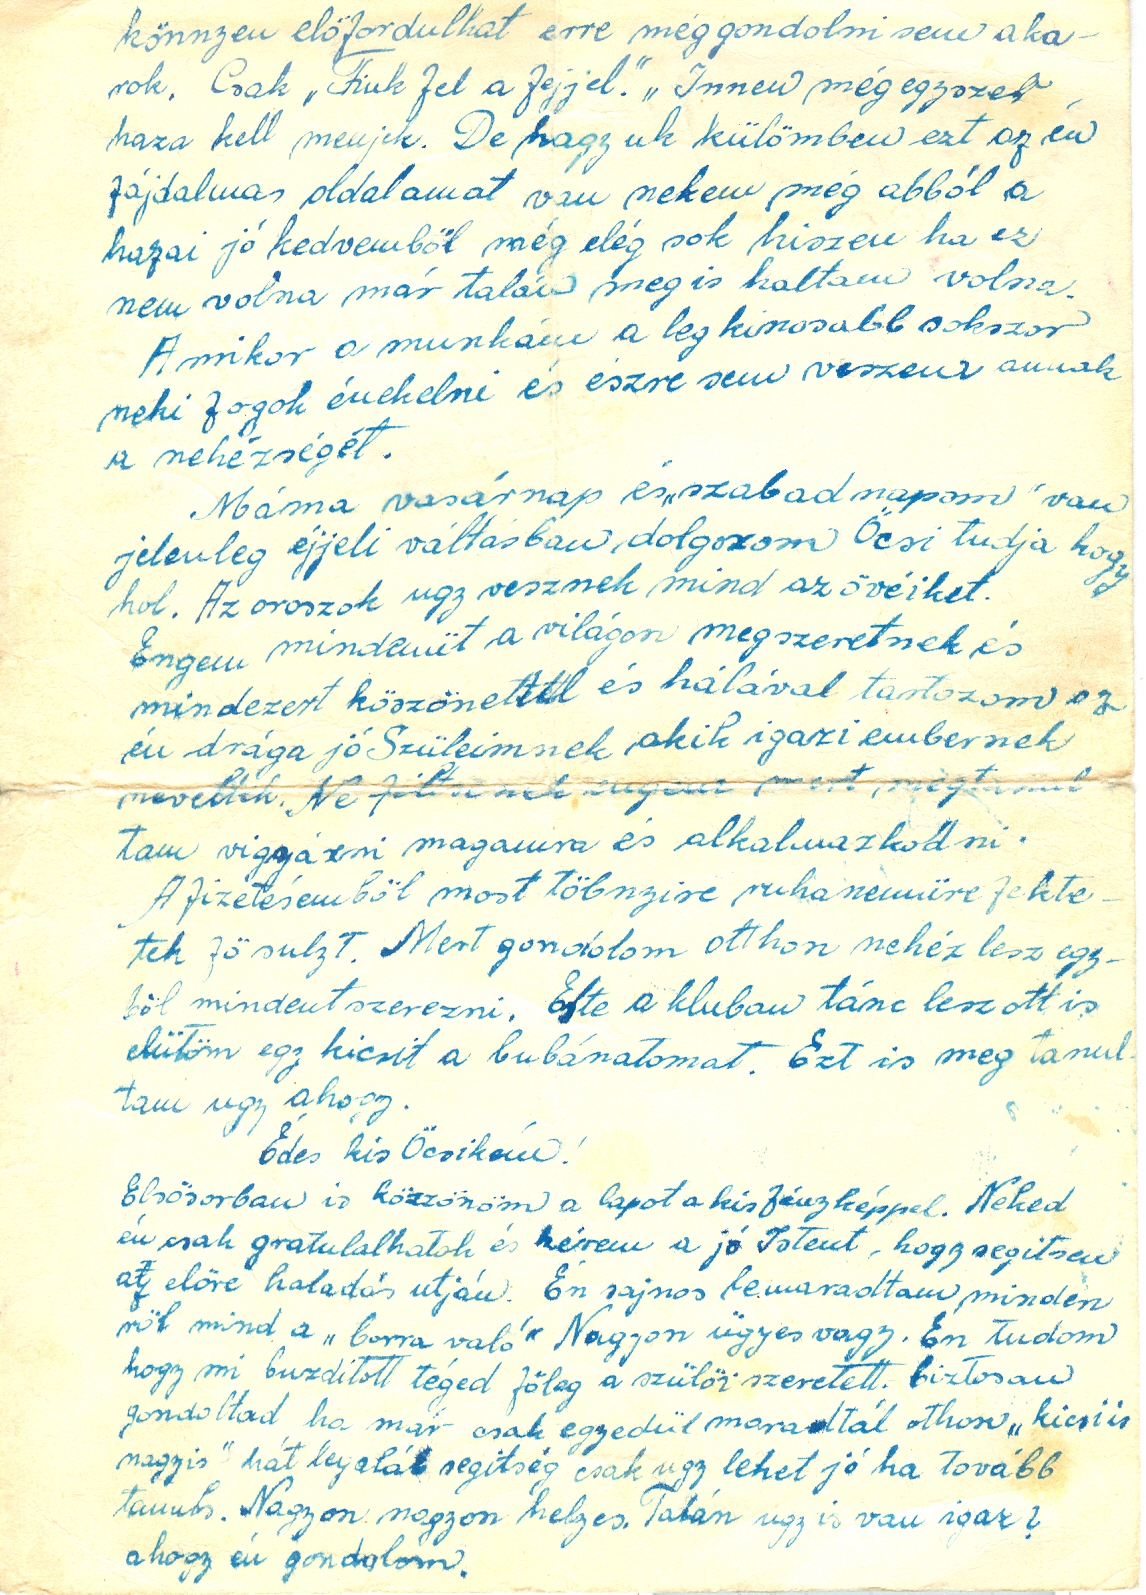 könnyen előfordulhat erre méggondolni sem aka-
rok. Csak „Fiuk fel a fejjel." „Innen mégegyszer
haza kell menjek. De hagyuk külömben ezt az én
fájdalmas oldalamat van nekem még abból a
hazai jó kedvemből még elég sok hiszen ha ez
nem volna már talán meg is haltam volna.
Amikor a munkám a leg kinosabb sokszor
neki fogok énekelni és észre sem veszem annak
a nehézségét.
Máma vasárnap és „szabadnapom" van
jelenleg éjjeli váltásban dolgozom Öcsi tudja hogy
hol. Az oroszok ugy vesznek mind az övéiket.
Engem mindenüt a világon megszeretnek és
mindezert köszönettel és hálával tartozom az
én drága jó Szüleimnek akik igazi embernek
neveltek. Ne féltsenek engem mert megtanul
tam viggyázni magamra és alkalmazkodni.
A fizetésemből most töbnyire ruhanemüre fekte-
tek fő sulyt. Mert gondolom otthon nehéz lesz egy-
ből mindent szerezni. Este a kluban tánc lesz ott is
elütöm egy kicsit a bubánatomat. Ezt is meg tanul-
tam ugy ahogy.
Édes kis Öcsikém!
Elsősorban is közzönöm a lapot a kis fényképpel. Neked
én csak gratulalhatok és kérem a jó Istent, hogy segitsen
az előre haladás utján. Én sajnos lemaradtam minden
ről mind a „borra való" Nagyon ügyes vagy. Én tudom
hogy mi buzditott téged főleg a szülői szeretett. biztosan
gondoltad ha már csak egyedül maradtál othon „kicsi is
nagyis" hát legalát segitség csak ugy lehet jó ha tovább
tanuls. Nagyon nagyon helyes. Talán ugy is van igaz?
ahogy én gondolom.